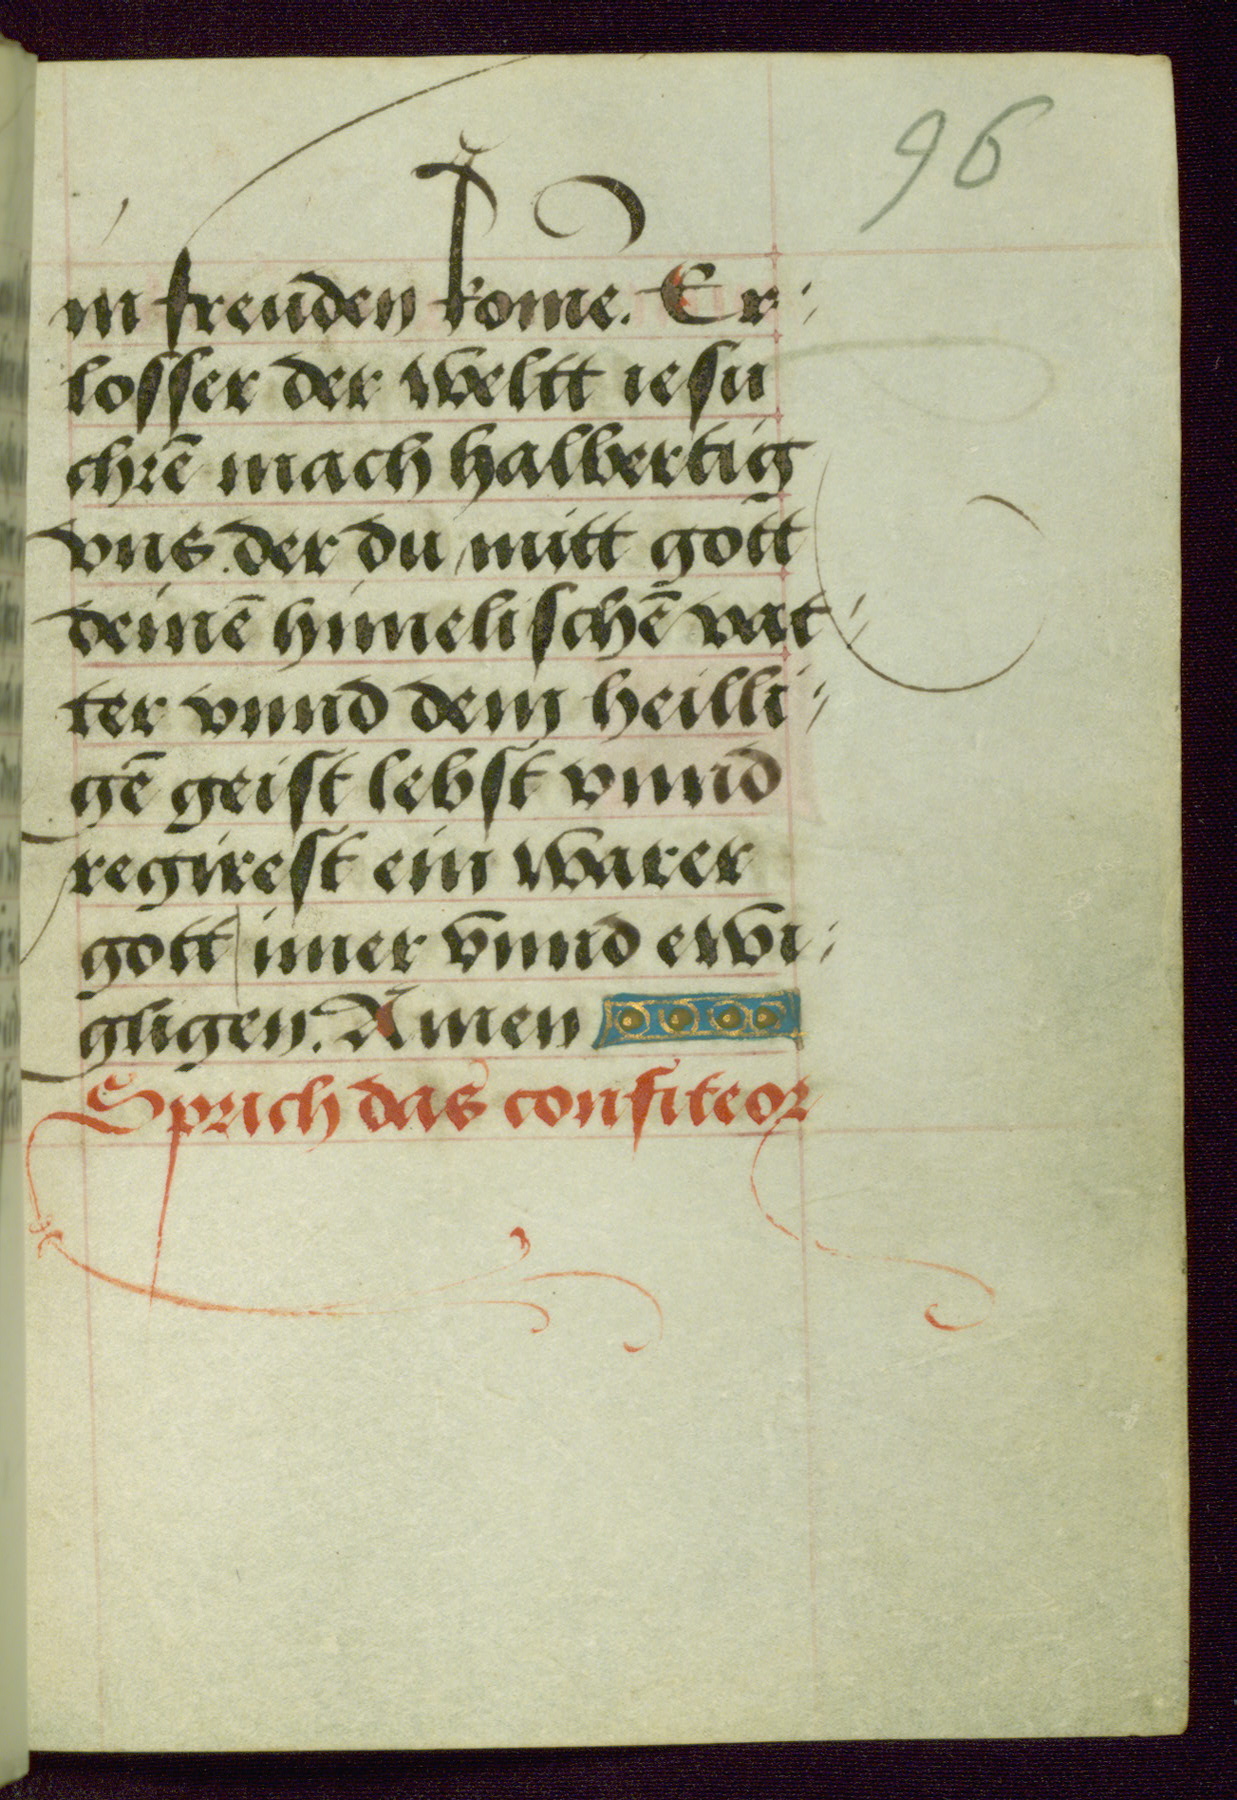 96
in freuden kome. Er⸗
losser der weltt iesu
chrē mach halbertig
vns. der du mitt gott
deinē himelischē vat⸗
ter vnnd dem heilli⸗
gē geist lebst vnnd
regirest ein warer
gott imer vnnd ewi⸗
gligen. Amen
Sprich das confiteor